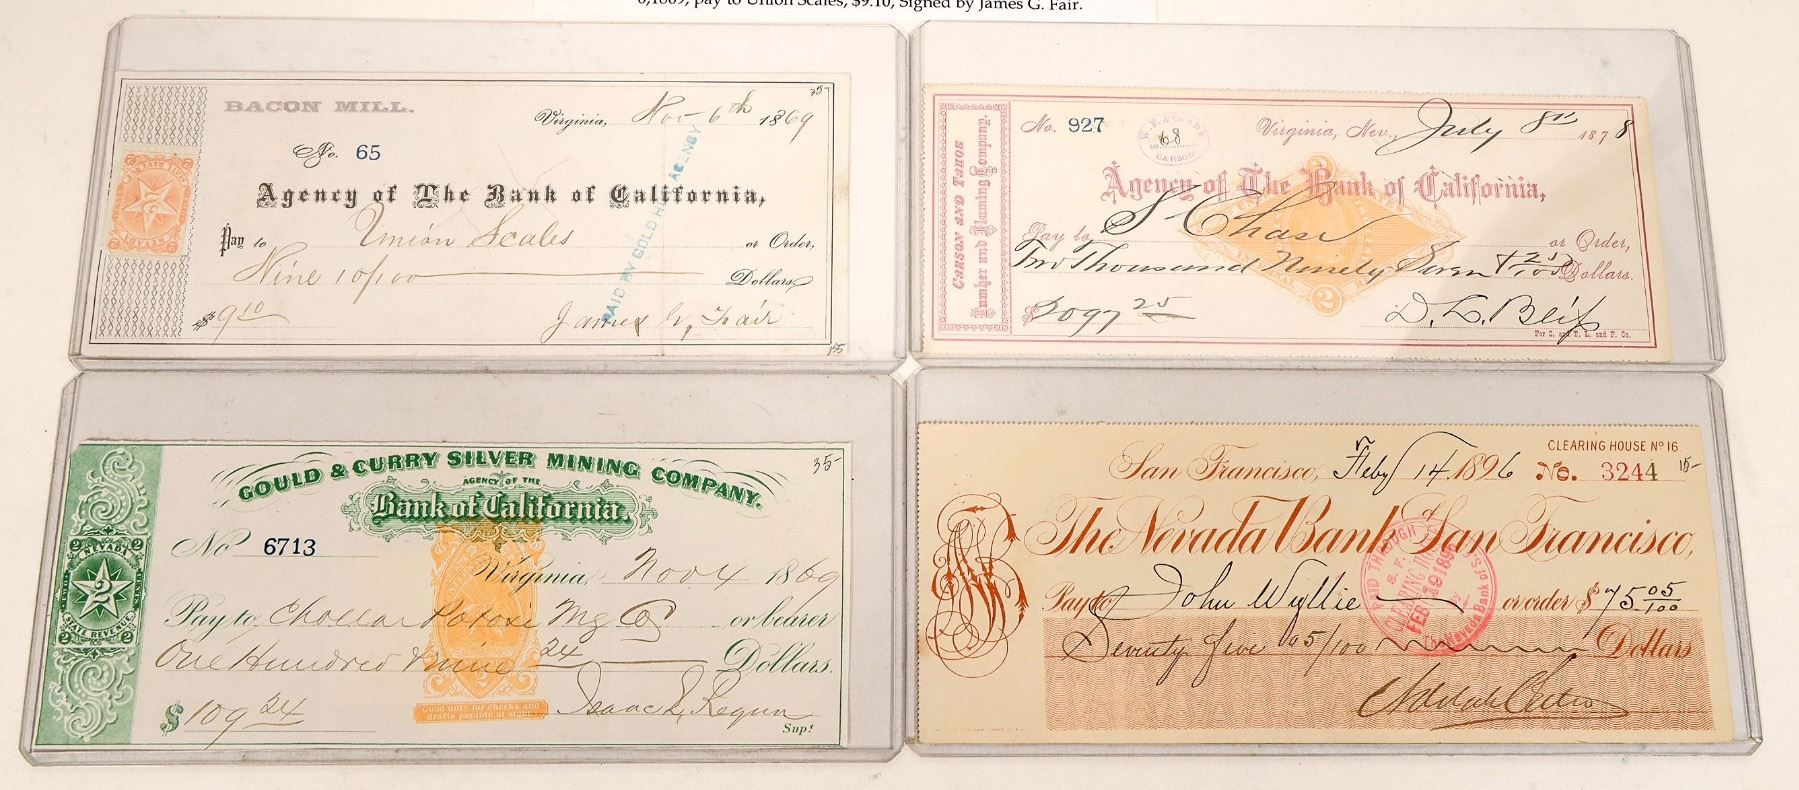 6,1869, pay to Union Scales, $9.10, Signed by James G. Fair.
BACON MILL.
35-
Virginia, Nov 6th 1869
No. 65
Agency of The Bank of California,
Pay to Union Scales or Order,
Nine 10/100 Dollars
$9.10
James G. Fair
PAID BY GOLD HILL AGENCY
155
CARSON AND TAHOE
Lumber and Fluming Company.
No. 927
68
CARSON
Virginia, Nev., July 8th 1878
Agency of The Bank of California,
Pay to S Chase or Order,
Two Thousand Ninety Seven + 25/100 Dollars.
$2097 25
D. L. Bliss
For C. and T. L. and F. Co.
GOULD & CURRY SILVER MINING COMPANY.
35-
AGENCY OF THE
Bank of California.
No 6713
Virginia, Nov 4 1869
Pay to Chollar Potosi Mg Co or bearer
One Hundred & nine 24 Dollars.
$109 24
Good only for checks and
drafts payable at sight.
Isaac L. Requa
Supt
2 NEVADA 2
2
STATE REVENUE
CLEARING HOUSE No 16.
San Francisco, Feby 14 1896 No. 3244 15-
The Nevada Bank of San Francisco,
Pay to John Wyllie or order $75 05/100
Seventy five 05/100 Dollars
PAID THROUGH
S. F.
CLEARING
FEB 19 1896
Nevada Bank of S.F.